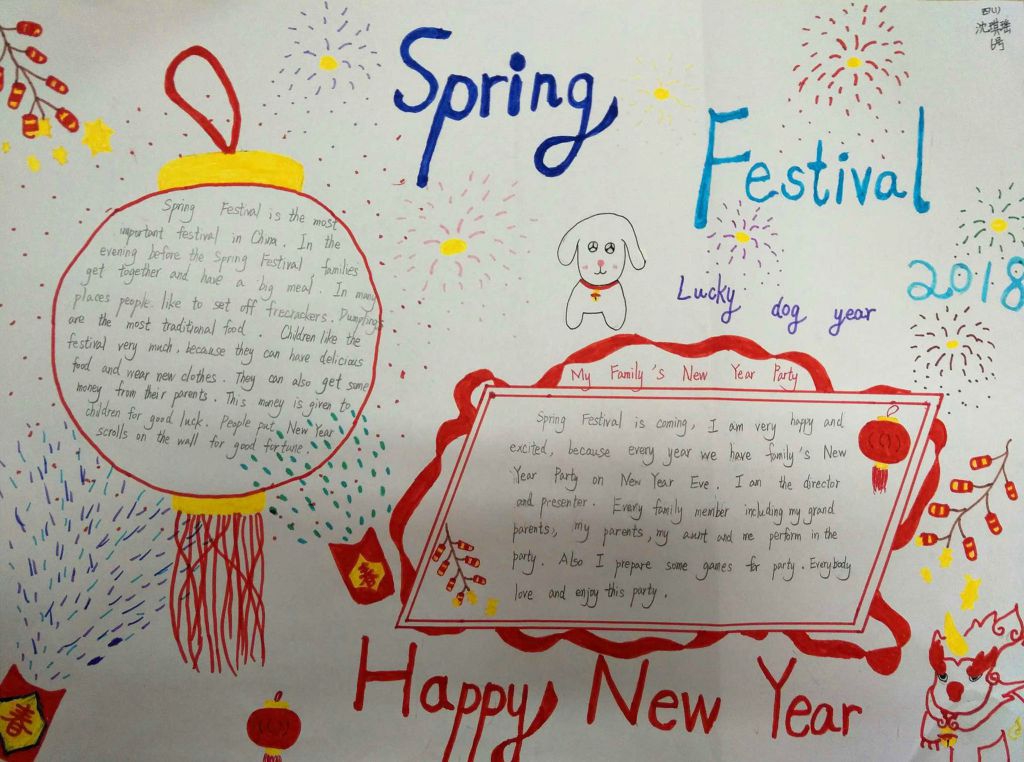 四(1)
沈琪瑶
6号
Spring
Festival
2018
Lucky dog year
Spring Festival is the most
important festival in China. In the
evening before the Spring Festival, families
get together and have a big meal. In many
places people like to set off firecrackers. Dumplings
are the most traditional food. Children like the
festival very much, because they can have delicious
food and wear new clothes. They can also get some
money from their parents. This money is given to
children for good luck. People put New Year
scrolls on the wall for good fortune.
My Family's New Year Party
Spring Festival is coming, I am very happy and
excited, because every year we have family's New
Year Party on New Year Eve. I am the director
and presenter. Every family member including my grand
parents, my parents, my aunt and me perform in the
party. Also I prepare some games for party. Everybody
love and enjoy this party.
春
春
Happy New Year